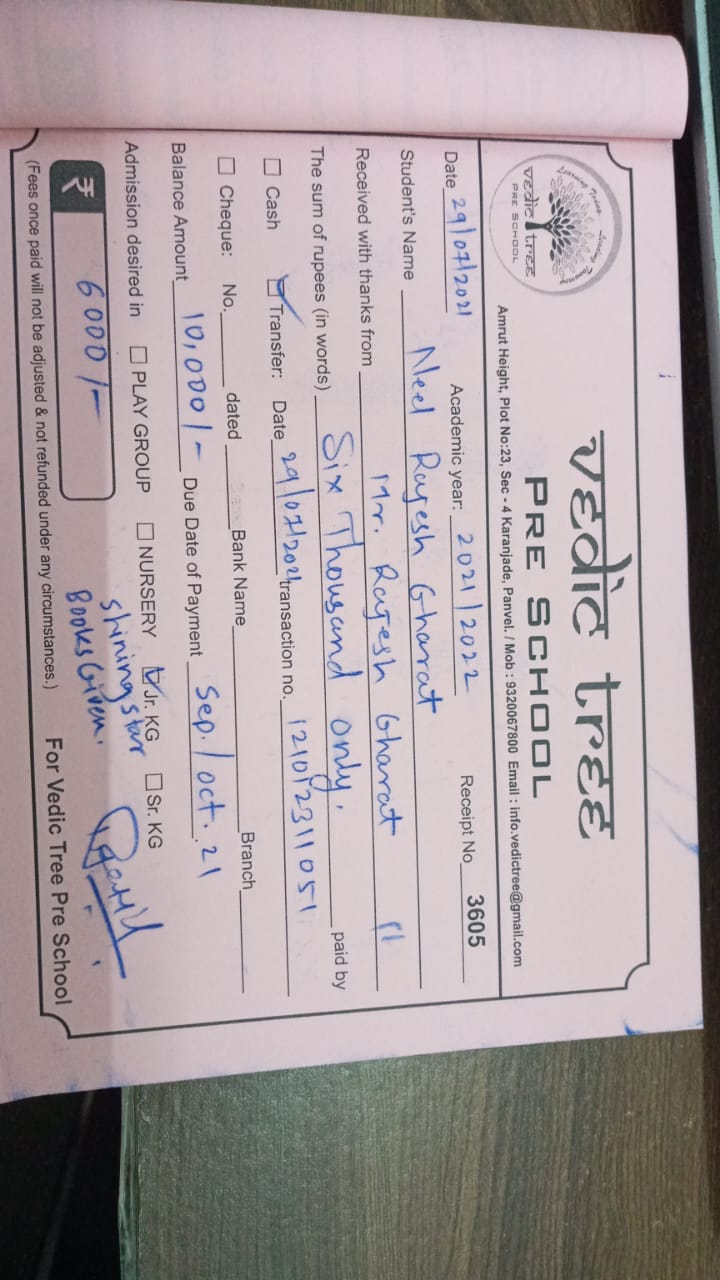 Learning Today Leading Tomorrow
vedic tree
PRE SCHOOL
vedic tree
PRE SCHOOL
Amrut Height, Plot No:23, Sec - 4 Karanjade, Panvel. / Mob : 9320067800 Email : info.vedictree@gmail.com
Date 29/07/2021 Academic year: 2021/2022 Receipt No 3605
Student's Name Neel Rajesh Gharat
Received with thanks from Mr. Rajesh Gharat
The sum of rupees (in words) Six Thousand only. paid by
☐ Cash ☑ Transfer: Date 29/07/2021 transaction no. 121012311051
☐ Cheque: No. dated Bank Name Branch
Balance Amount 10,000/- Due Date of Payment Sep./oct.21
Admission desired in ☐ PLAY GROUP ☐ NURSERY ☑ Jr. KG ☐ Sr. KG
Shining star
₹ 6000/- Books Given.
(Fees once paid will not be adjusted & not refunded under any circumstances.) For Vedic Tree Pre School